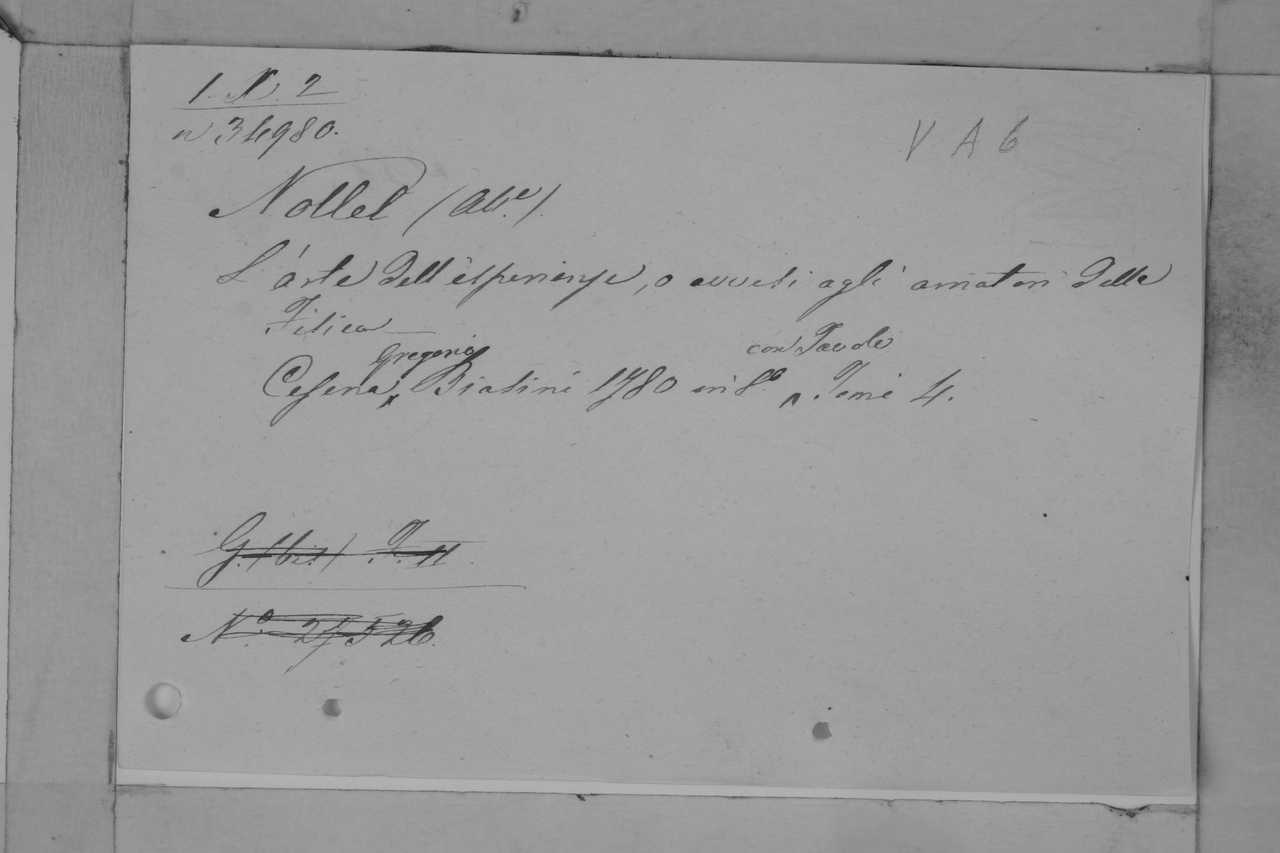 1. N. 2
n 34980.
V A 6
Nollet (Ab.e).
L'arte dell'esperienze, o avvisi agli amatori della
Fisica
Cesena, Gregorio Biasini 1780 in 8.o con Tavole Tomi 4.
G.
N.o 27526.